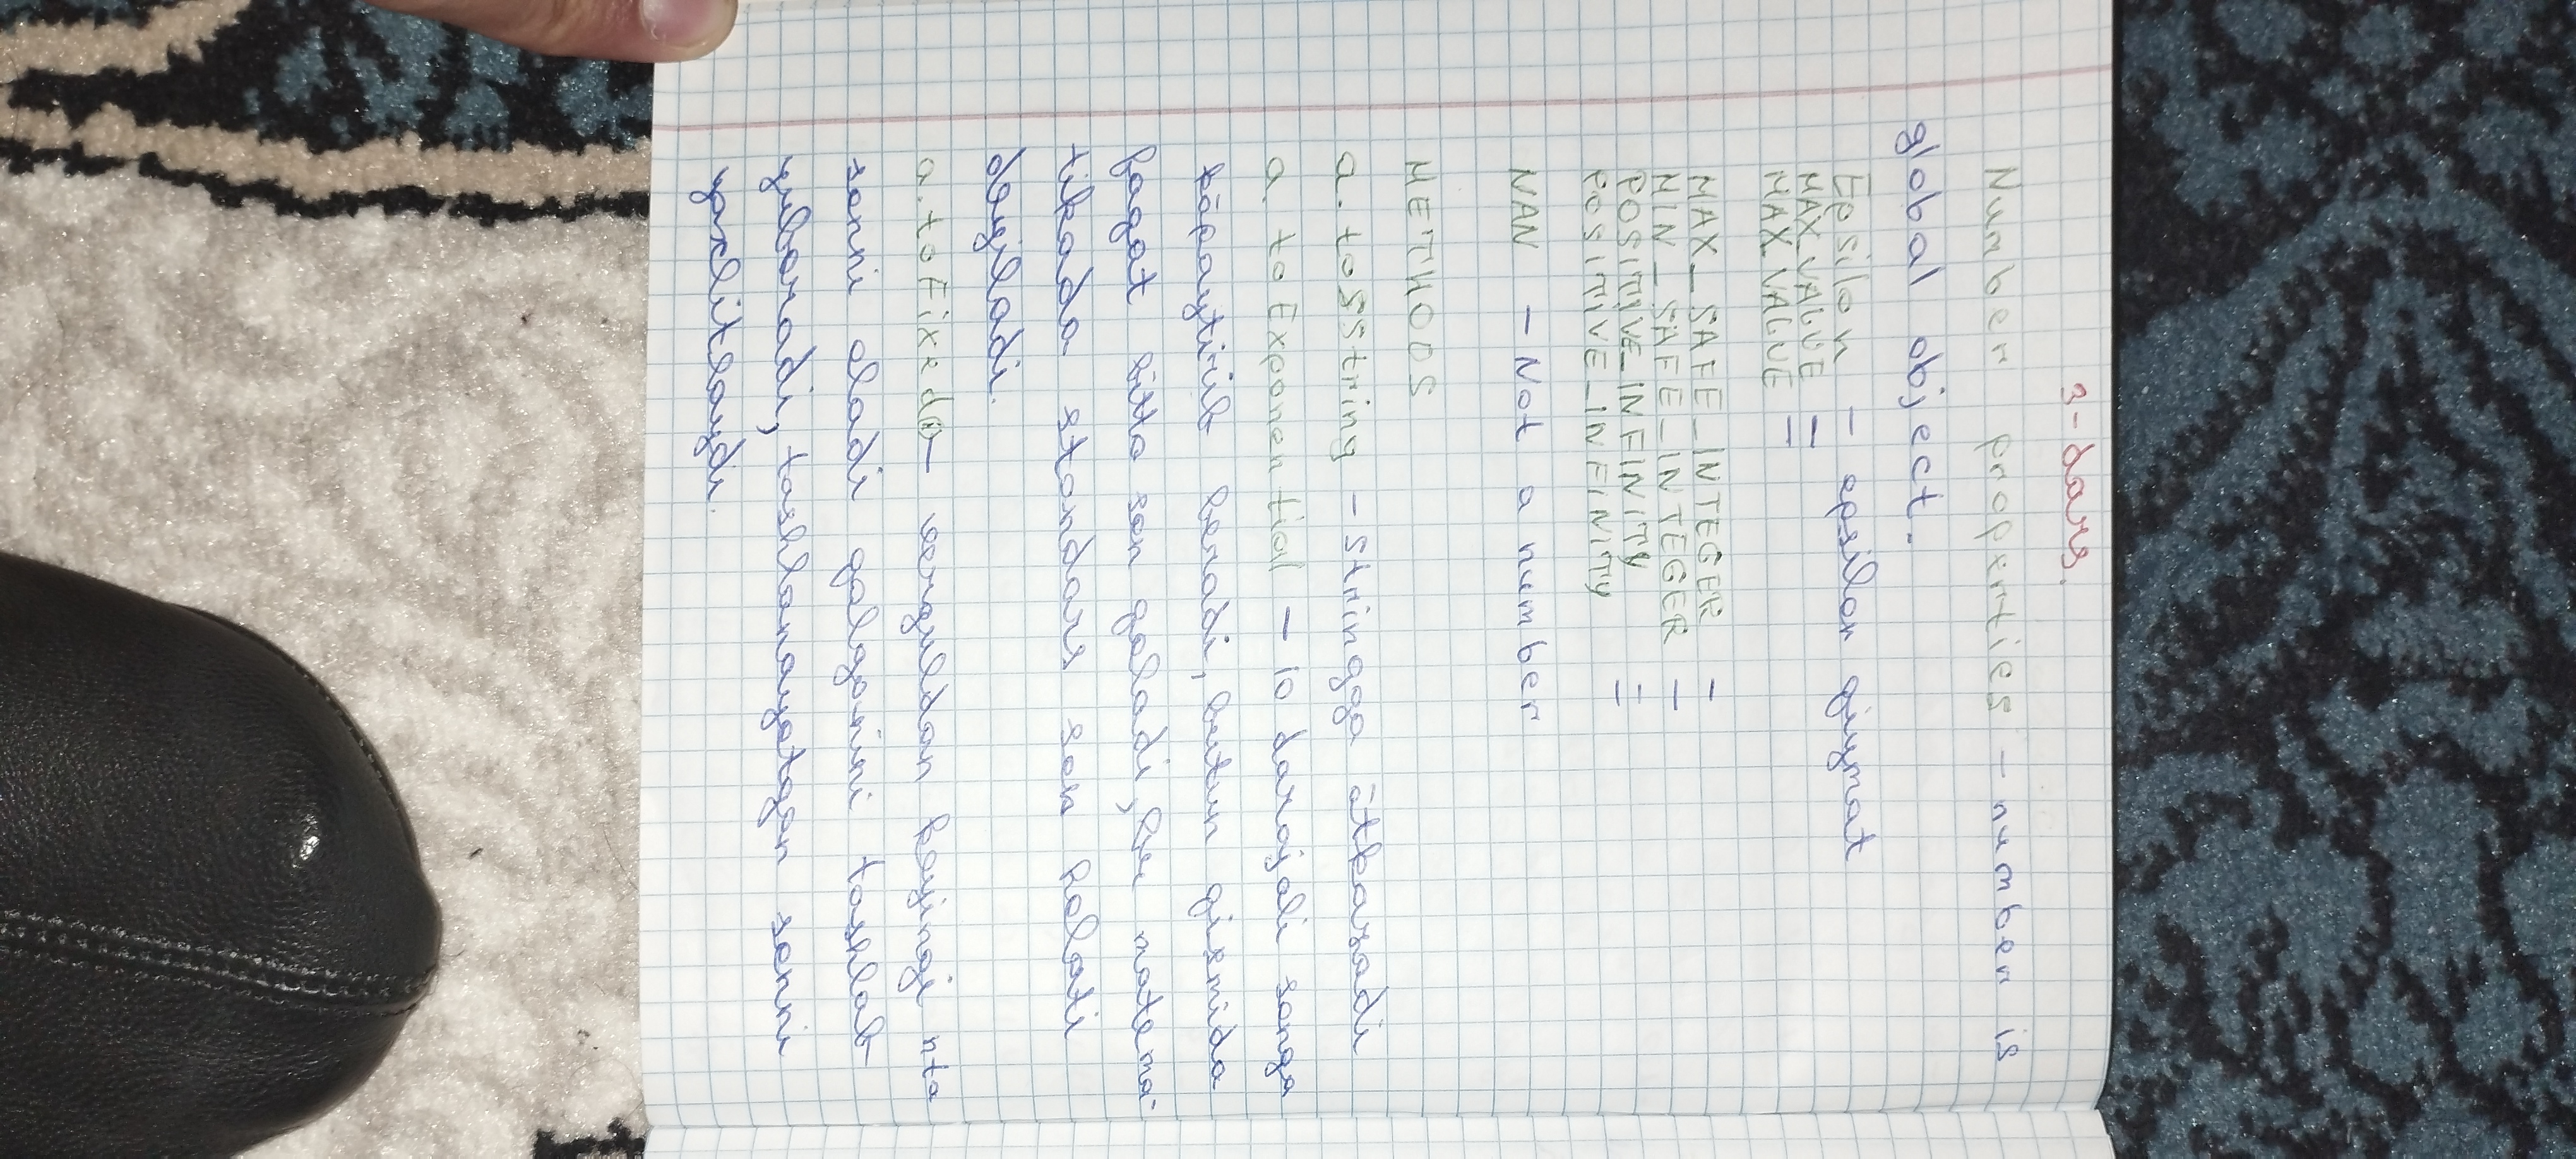 3-dars.
Number properties - number is
global object.
Epsilon - epsilon qiymat
MAX_VALUE =
MAX_VALUE =
MAX_SAFE_INTEGER =
MIN_SAFE_INTEGER =
POSITIVE_INFINITY =
POSITIVE_INFINITY
NAN - Not a number
METHODS
a.toSString - stringga ōtkazadi
a.toExponential - 10 darajali songa
kōpaytirib beradi, butun qismida
faqat bitta son qoladi, bu matema-
tikada standars son holati
deyiladi.
a.toFixed() - verguldan keyingi nta
sonni oladi qolganini tashlab
yuboradi, tashlanayotgan sonni
yaxlitlaydi.